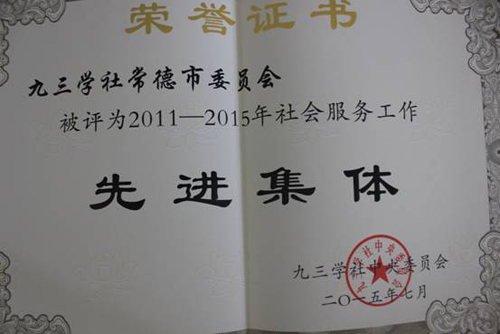 荣誉证书
九三学社常德市委员会
被评为2011—2015年社会服务工作
先进集体
九三学社中央委员会
二〇一五年七月